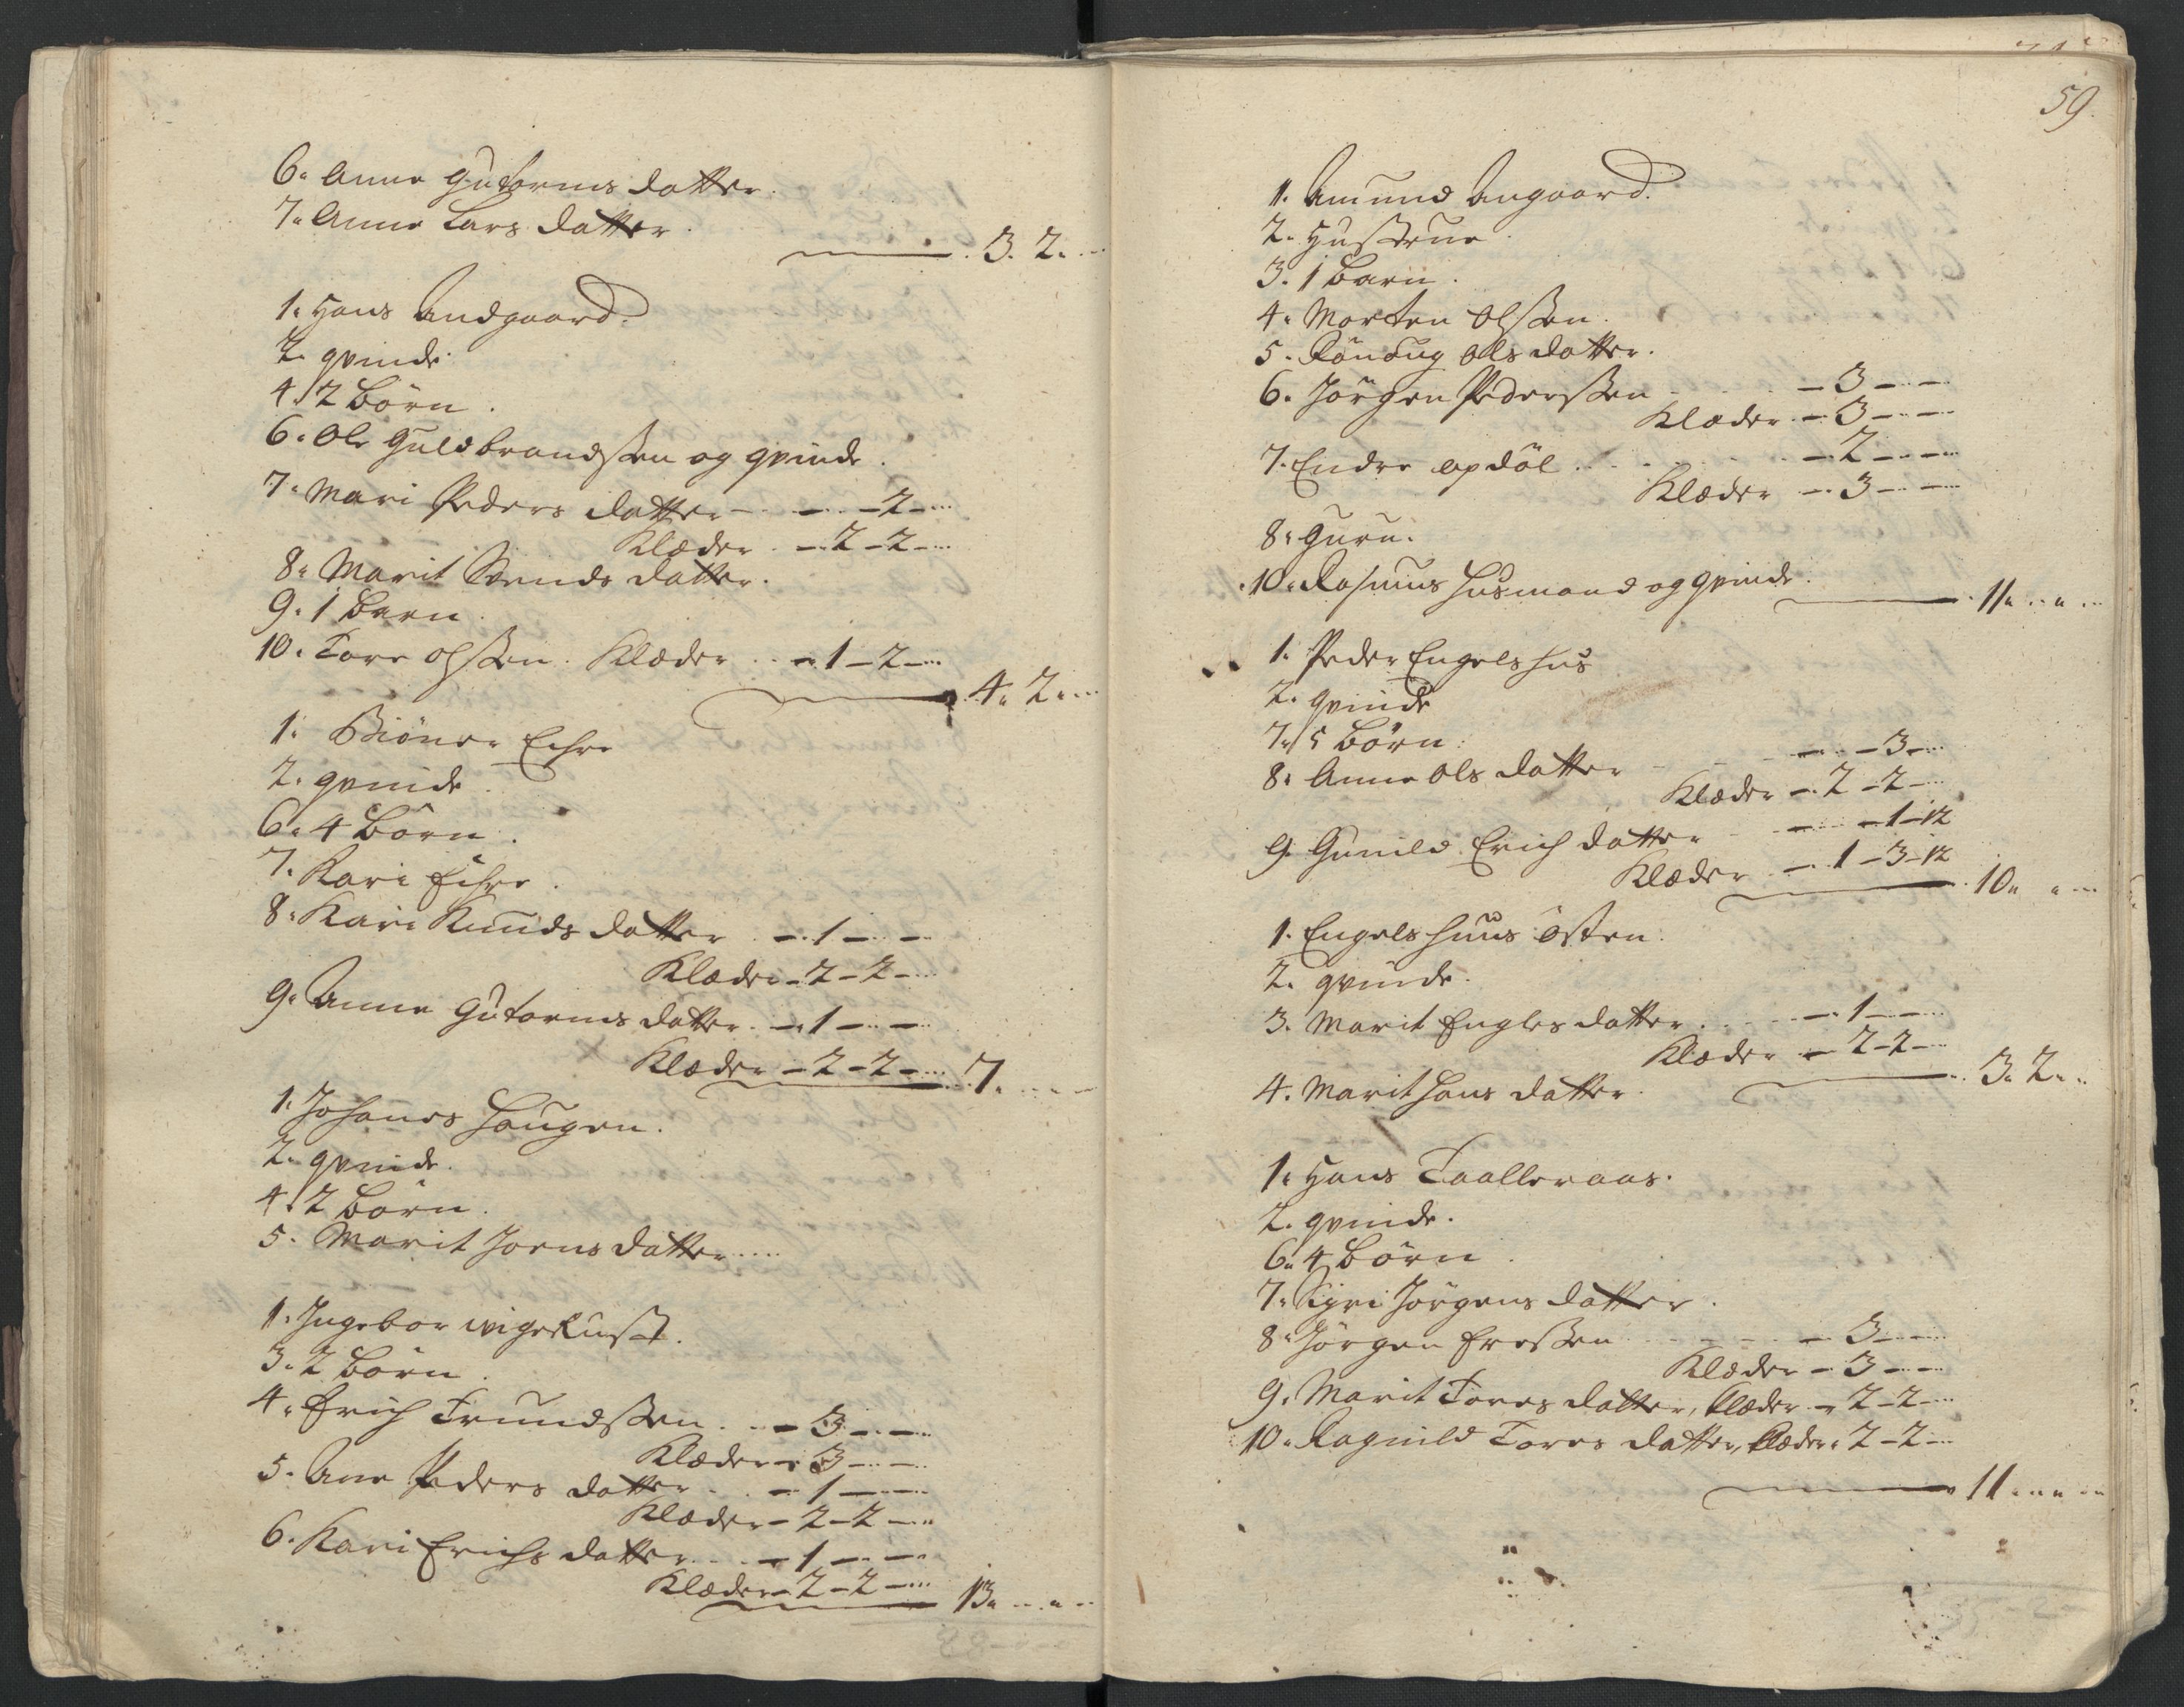 6. Anne Gutorms datter.
7. Anne Lars datter. 3. 2.
1. Hans Andgaard.
2. qvinde.
4. 2 börn.
6. Ole Guldbrandssen og qvinde.
7. Mari Peders datter - - 2 -
Klæder - 2 - 2 -
8. Marit Svends datter.
9. 1 barn
10. Tore Olssen. Klæder - 1 - 2 -
4. 2.
1. Biöner Echre
2. qvinde.
6. 4 börn.
7. Kari Echre.
8. Kari Knuds datter - 1 - -
Klæder - 2 - 2 -
9. Anne Gutorms datter. - 1 - -
Klæder - 2 - 2 - 7.
1. Johanes Haugen.
2. qvinde.
4. 2 börn.
5. Marit Joens datter
1. Ingebor wigerust.
3. 2 börn.
4. Erich Trundssen - 3 - -
Klæder - 3 - -
5. Ane Peders datter - 1 - -
Klæder - 2 - 2 -
6. Kari Erichs datter - 1 - -
Klæder - 2 - 2 - 13.
59.
1. Amund Angaard.
2. Hustrue.
3. 1 barn.
4. Morten Olssen.
5. Rönnug Ols datter.
6. Jörgen Pederssen - 3 - -
Klæder - 3 - -
7. Endre opdöl - 2 - -
Klæder - 3 - -
8. Guru.
10. Rasmus Husmand og qvinde. 11.
1. Peder Engelshus
2. qvinde
7. 5 börn.
8. Anne Ols datter - - 3 -
Klæder - 2 - 2 -
9. Gunild Erich datter - - 1 - 12
Klæder - 1 - 3 - 12
10.
1. Engelshuus östen.
2. qvinde.
3. Marit Engles datter - 1 - -
Klæder - 2 - 2 -
4. Marit Hans datter. 3. 2.
1. Hans Taalleraas.
2. qvinde.
6. 4 börn.
7. Sigri Jörgens datter.
8. Jörgen Erssen - 3 - -
Klæder - 3 - -
9. Marit Tores datter, klæder - 2 - 2 -
10. Ragnild Tores datter, klæder 2 - 2 -
11.